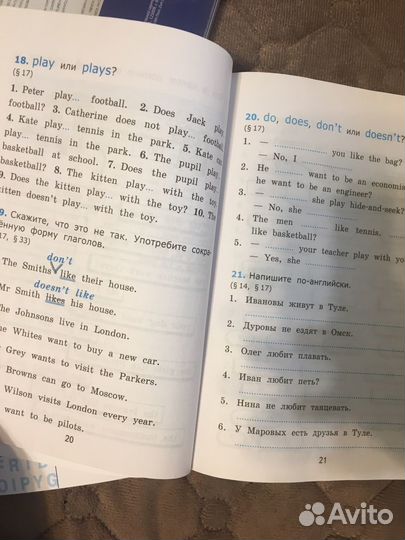 18. play или plays?
(§ 17)
1. Peter play... football. 2. Does Jack play...
football? 3. Catherine does not play... football.
4. Kate play... tennis in the park. 5. Kate can
play... tennis in the park. 6. The pupil play...
basketball at school. 7. Does the pupil play...
basketball? 8. The kitten play... with the toy.
9. Does the kitten play... with the toy? 10. The
kitten doesn't play... with the toy.
9. Скажите, что это не так. Употребите сокра-
ённую форму глаголов.
17, § 33)
don't
The Smiths like their house.
doesn't like
Mr Smith likes his house.
The Johnsons live in London.
e Whites want to buy a new car.
Grey wants to visit the Parkers.
Browns can go to Moscow.
Wilson visits London every year.
want to be pilots.
20
20. do, does, don't или doesn't?
(§ 17)
1. — ........ you like the bag?
— No, I ........
2. He ........ want to be an economis
he want to be an engineer?
3. — ........ she play hide-and-seek?
— No, she ........
4. The men ........ like tennis.
like basketball?
5. — ........ your teacher play with yo
— Yes, she ........
21. Напишите по-английски.
(§ 14, § 17)
1. Ивановы живут в Туле.
2. Дуровы не ездят в Омск.
3. Олег любит плавать.
4. Иван любит петь?
5. Нина не любит танцевать.
6. У Маровых есть друзья в Туле.
21
Avito